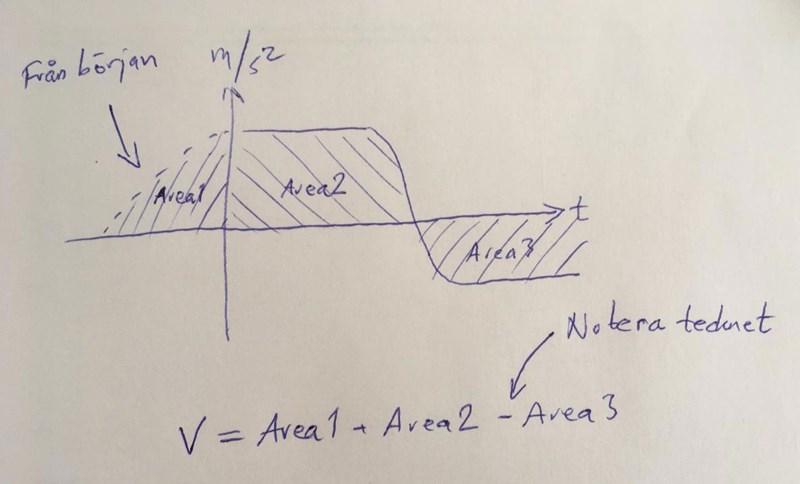 Från början
m/s²
Area1
Area2
t
Area3
Notera tecknet
V = Area1 + Area2 - Area3